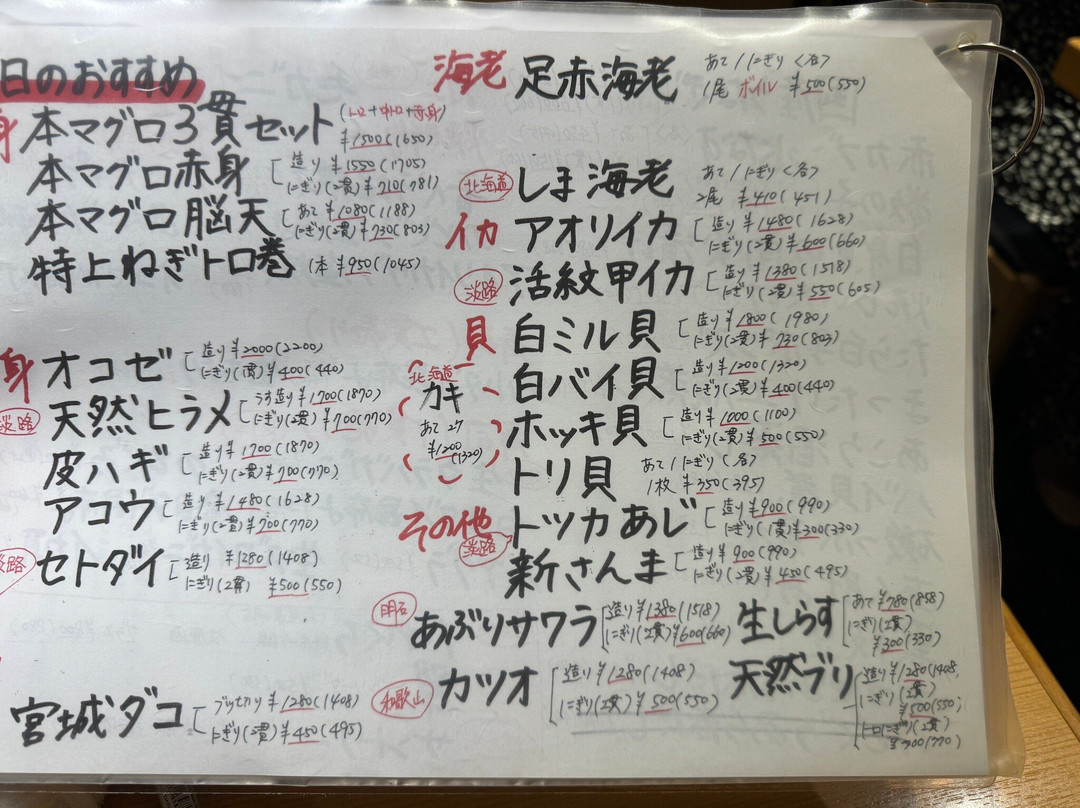 日のおすすめ
身 本マグロ3貫セット (トロ+中トロ+赤身) ¥1500(1650)
本マグロ赤身 造り ¥1550(1705)
にぎり(2貫) ¥710(781)
本マグロ脳天 あて ¥1080(1188)
にぎり(2貫) ¥730(803)
特上ねぎトロ巻 1本 ¥950(1045)
身 オコゼ 造り ¥2000(2200)
にぎり(1貫) ¥400(440)
淡路 天然ヒラメ うす造り ¥1700(1870)
にぎり(2貫) ¥700(770)
皮ハギ 造り ¥1700(1870)
にぎり(2貫) ¥700(770)
アコウ 造り ¥1480(1628)
にぎり(2貫) ¥700(770)
淡路 セトダイ 造り ¥1280(1408)
にぎり(2貫) ¥500(550)
宮城ダコ ブツ切り ¥1280(1408)
にぎり(2貫) ¥450(495)
海老 足赤海老 あて/にぎり<各>
1尾 ボイル ¥500(550)
北海道 しま海老 あて/にぎり<各>
2尾 ¥410(451)
イカ アオリイカ 造り ¥1480(1628)
にぎり(2貫) ¥600(660)
淡路 活紋甲イカ 造り ¥1380(1518)
にぎり(2貫) ¥550(605)
貝 白ミル貝 造り ¥1800(1980)
にぎり(2貫) ¥730(803)
北海道
カキ
あて 2ケ
¥1200(1320)
白バイ貝 造り ¥1200(1320)
にぎり(2貫) ¥400(440)
ホッキ貝 造り ¥1000(1100)
にぎり(2貫) ¥500(550)
トリ貝 あて/にぎり(各)
1枚 ¥350(395)
その他 淡路 トツカあじ 造り ¥900(990)
にぎり(1貫) ¥300(330)
新さんま 造り ¥900(990)
にぎり(2貫) ¥450(495)
明石 あぶりサワラ 造り ¥1380(1518)
にぎり(2貫) ¥600(660)
生しらす あて ¥780(858)
にぎり(2貫)
¥300(330)
和歌山 カツオ 造り ¥1280(1408)
にぎり(2貫) ¥500(550)
天然ブリ 造り ¥1280(1408)
にぎり(2貫)
¥500(550)
トロにぎり(2貫)
¥700(770)